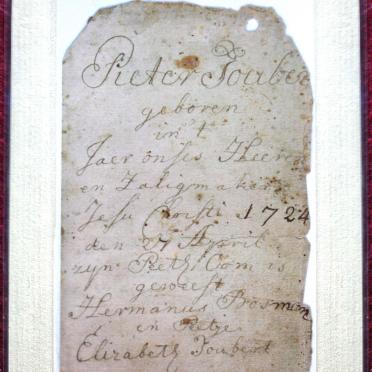 Pieter Jouber
geboren
in't
Jaer onses Heeren
en Zaligmaker
Jesu Christi 1724
den 27 April
zyn Peeth Oom is
geweest
Hermanus Prosman
en Petje
Elizabeth Joubert